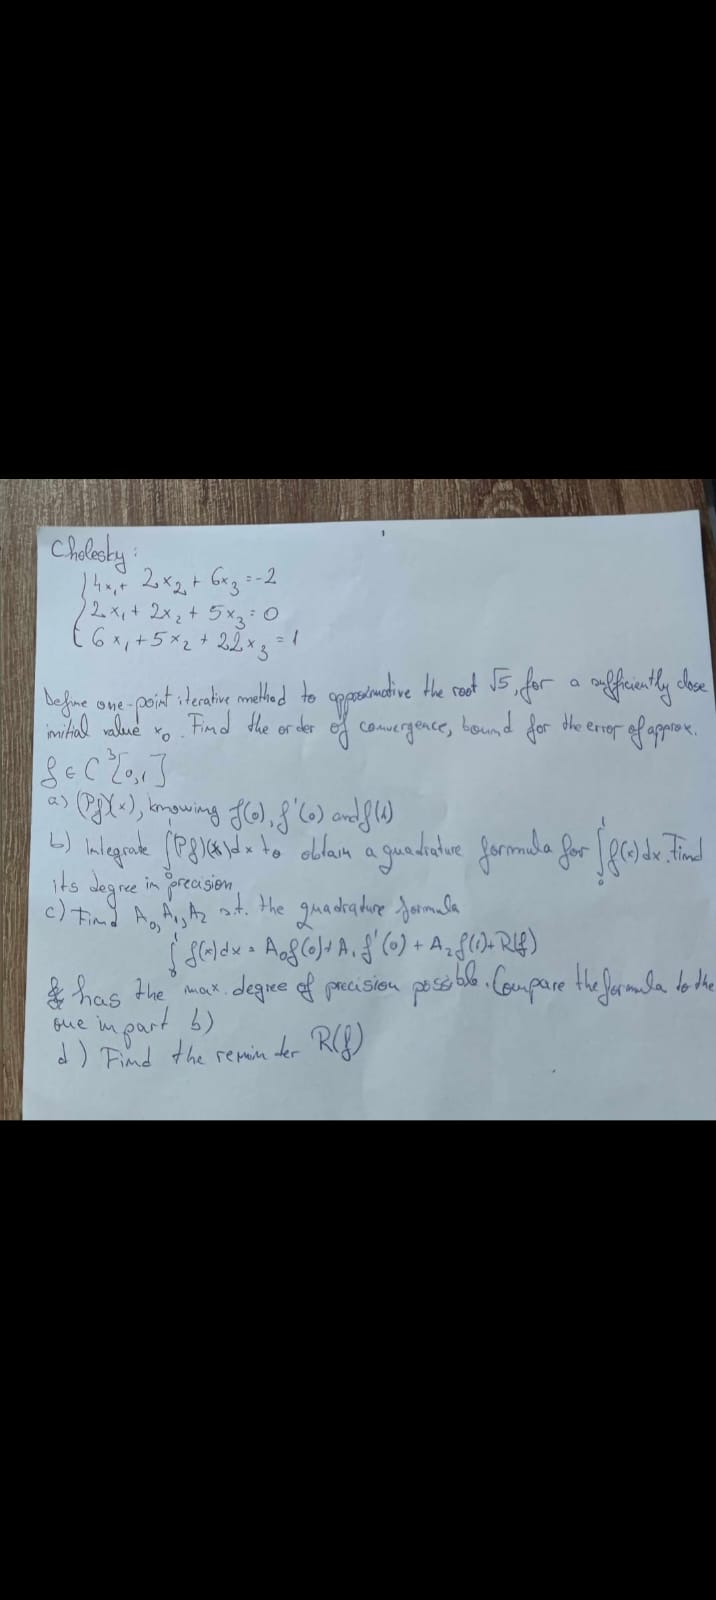 Cholesky:
4x₁+ 2x₂+ 6x₃ =-2
2x₁+ 2x₂+ 5x₃= 0
6x₁+5x₂+22x₃=1
Define one-point iterative method to approximative the root √5, for a sufficiently close
initial value x₀. Find the order of convergence, bound for the error of approx.
f ∈ C³[0,1]
a) (Pf)(x), knowing f(0), f'(0) and f(1)
b) Integrate ∫₀¹(Pf)(x)dx to obtain a quadrature formula for ∫₀¹f(x)dx. Find
its degree in precision
c) Find A₀,A₁,A₂ s.t. the quadrature formula
∫₀¹ f(x)dx = A₀f(0)+A₁f'(0)+A₂f(1)+R(f)
has the max. degree of precision possible. Compare the formula to the
one in part b)
d) Find the reminder R(f)